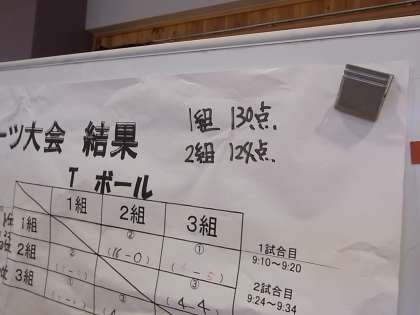 ーツ大会 結果
1組 130点
2組 128点
T ボール
1組 2組 3組
1組 ② (16-0) ①
2組 ② ③ (4-4)
3組 ① ③
1試合目
9:10～9:20
2試合目
9:24～9:34